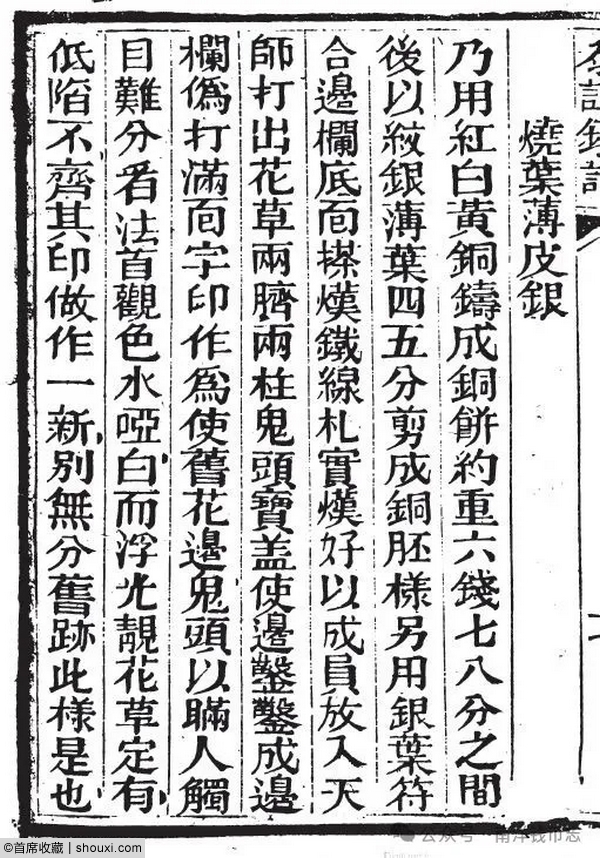 燒葉薄皮銀
乃用紅白黃銅鑄成銅餅約重六錢七八分之間
後以紋銀薄葉四五分剪成銅胚樣另用銀葉符
合邊欄底靣搽熯鐵線札實熯好以成員放入天
師打出花草兩臍兩柱鬼頭寶盖使邊鏨鏨成邊
欄僞打滿靣字印作爲使舊花邊鬼頭以瞞人觸
目難分看法首觀色水啞白而浮光靚花草定有
低陷不齊其印做作一新別無分舊跡此樣是也
公众号 · 南洋钱币志
©首席收藏 | shouxi.com